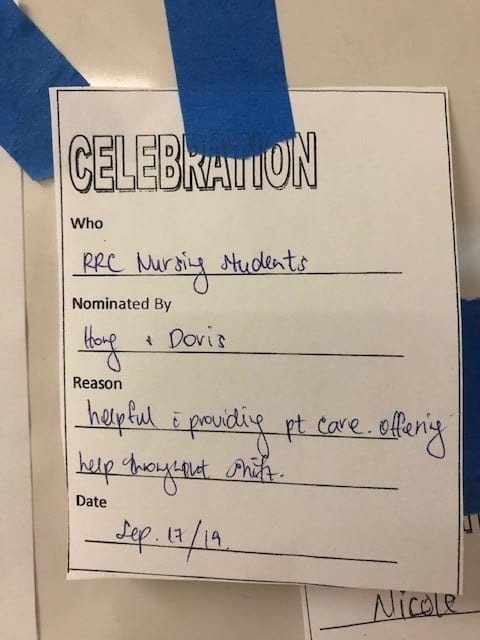 CELEBRATION
Who
RRC Nursing students
Nominated By
Hong + Doris
Reason
helpful c̄ providing pt care. offering
help throughout shift.
Date
Sep. 17/19.
Nicole